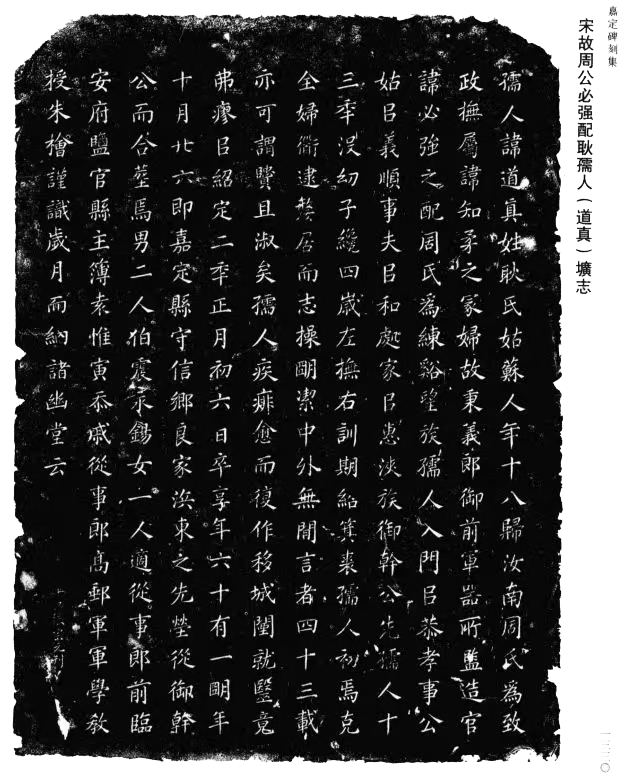 嘉定碑刻集
宋故周公必强配耿孺人（道真）壙志
孺人諱道真姓耿氏姑蘇人年十八歸汝南周氏為致
政撫屬諱知柔之冢婦故秉義郎御前軍器所監造官
諱必強之配周氏為練谿望族孺人入門㠯恭孝事公
姑㠯義順事夫㠯和處家㠯惠浹族御幹公先孺人十
三年没幼子纔四歲左撫右訓期紹箕裘孺人初焉克
全婦衟逮嫠居而志操朙潔中外無間言者四十三載
亦可謂賢且淑矣孺人疾痱愈而復作移城闉就毉竟
弗瘳㠯紹定二年正月初六日卒享年六十有一朙年
十月廿六即嘉定縣守信鄉良家浜東之先塋從御幹
公而合塟焉男二人伯震永錫女一人適從事郎前臨
安府鹽官縣主簿素惟寅忝戚從事郎高郵軍軍學教
授朱檜謹識歲月而納諸幽堂云
一二三〇